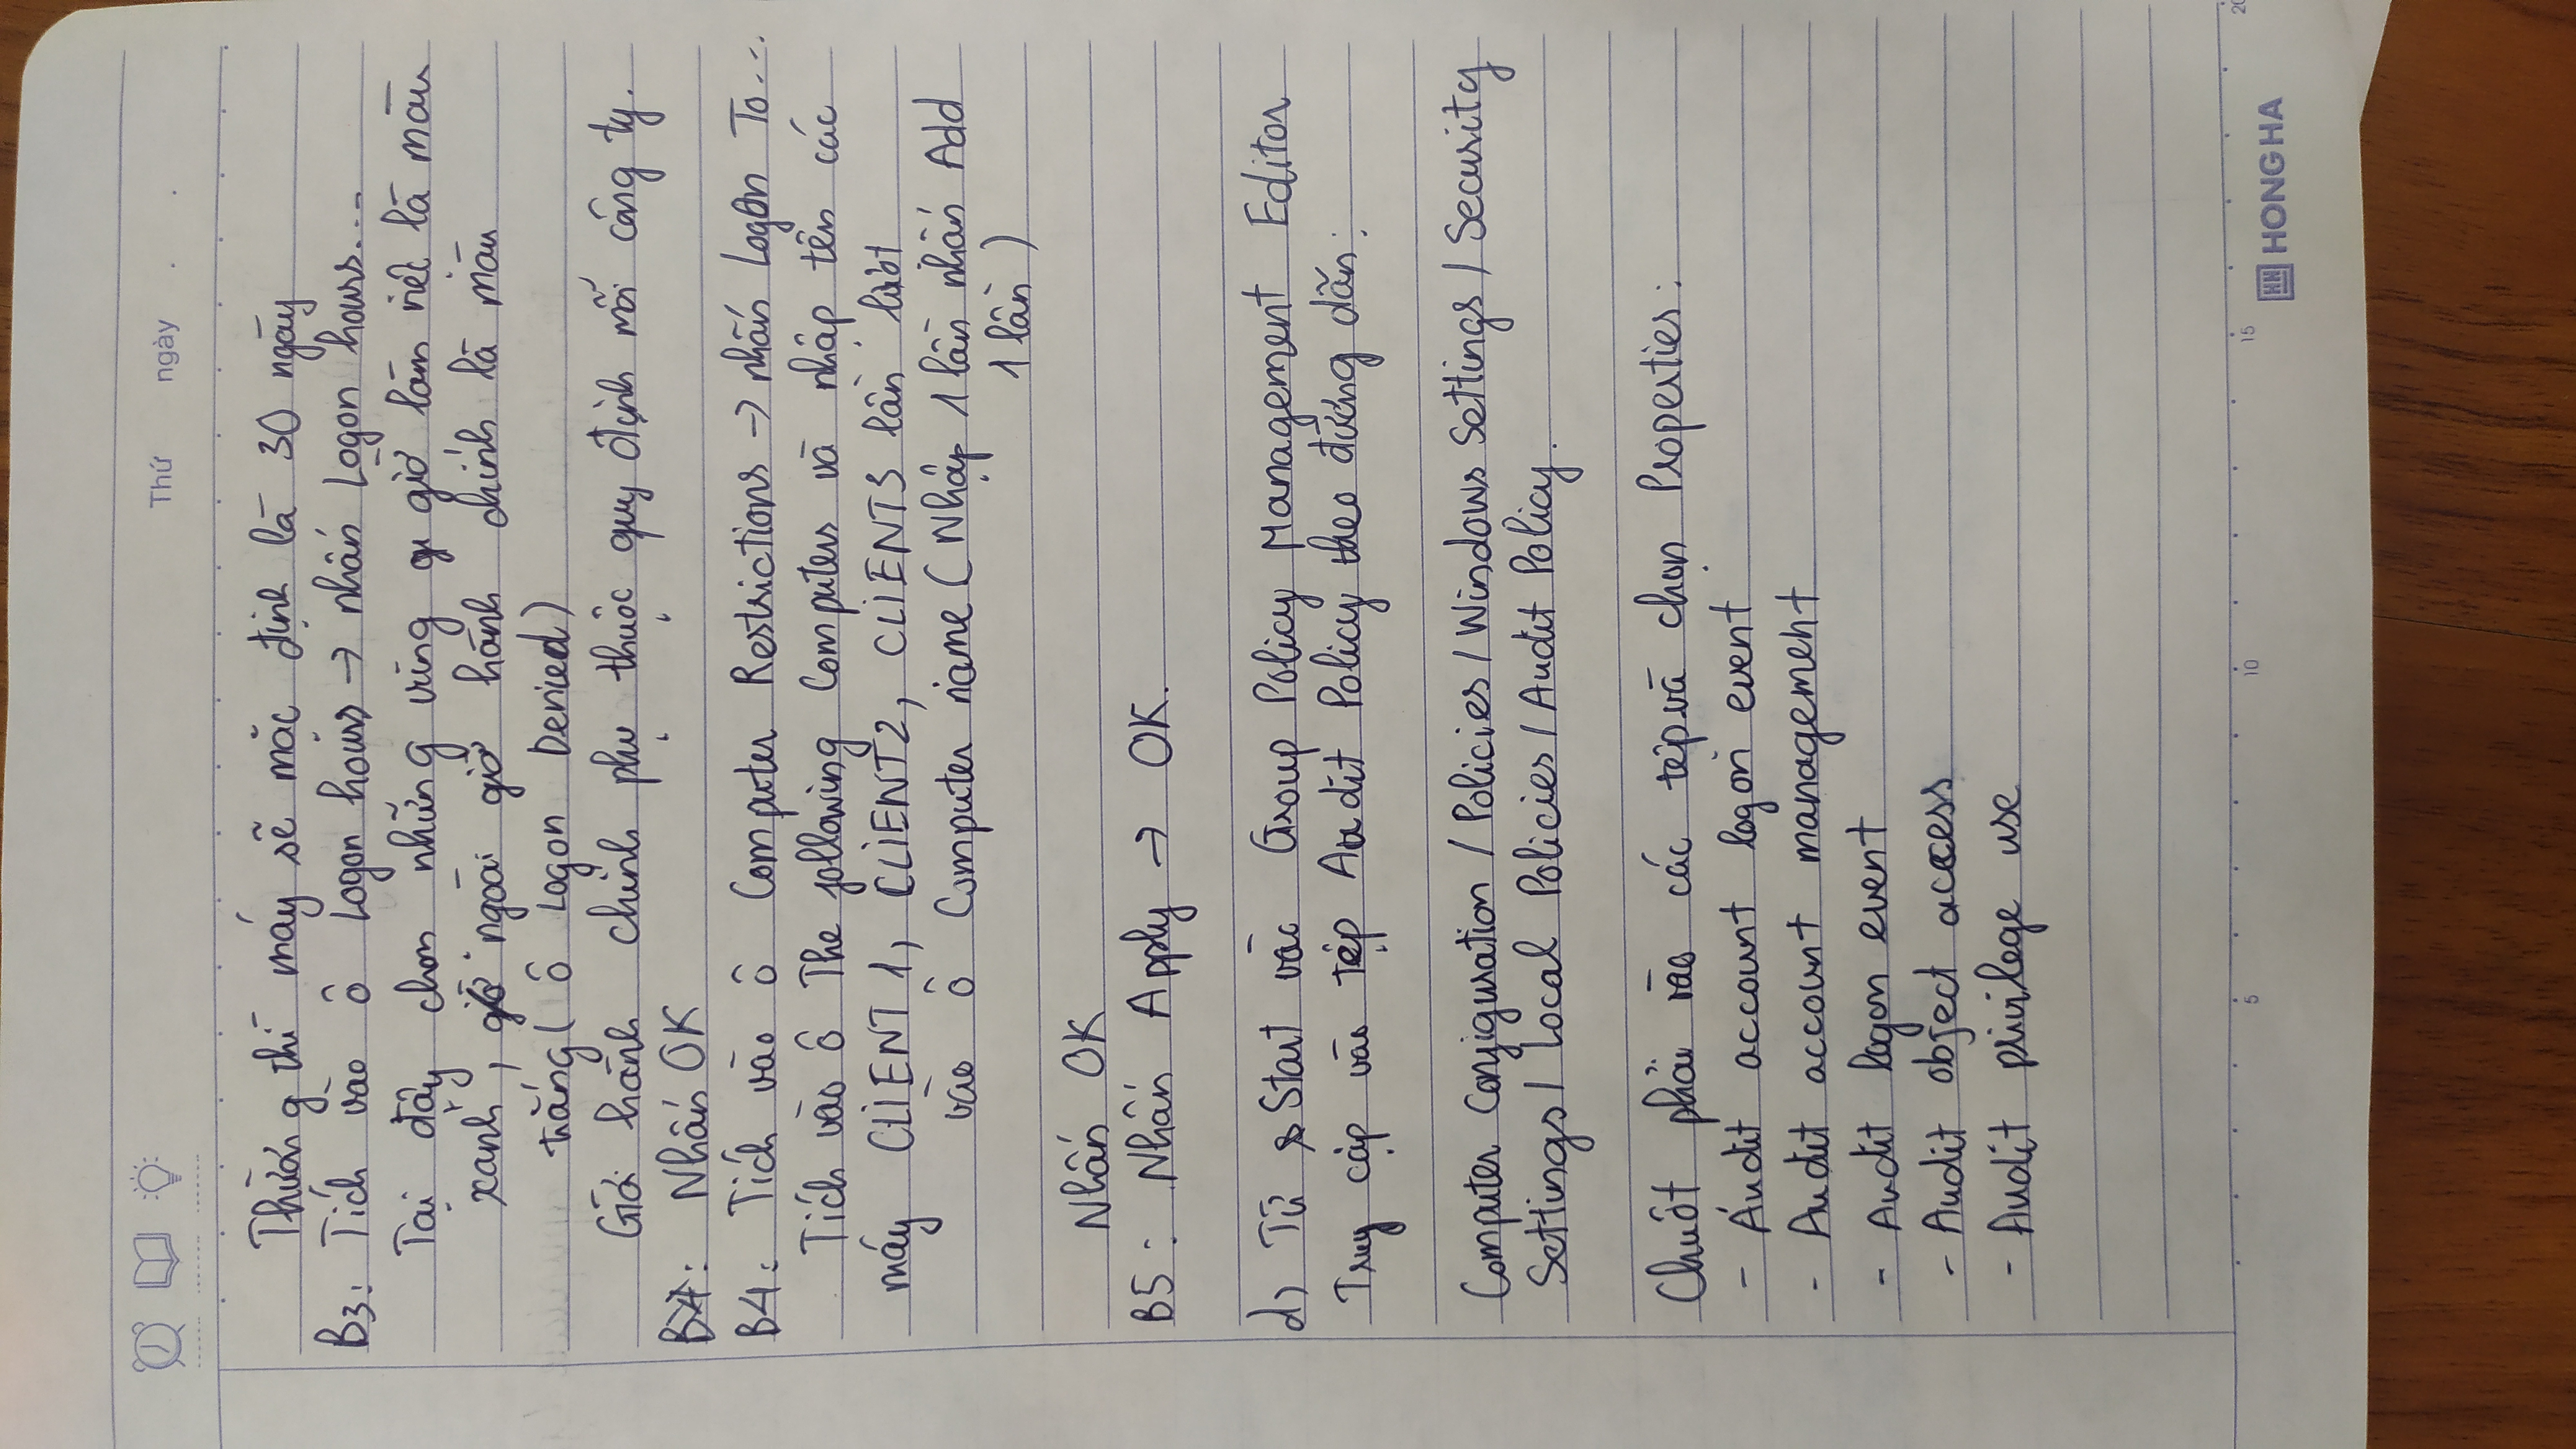 Thứ ngày . .
Thường thì máy sẽ mặc định là 30 ngày
B3: Tích vào ô Logon hours → nhấn Logon hours...
Tại đây chọn những vùng giờ làm việc là màu
xanh, ngoài giờ hành chính là màu
trắng ( ô Logon Denied )
Giờ hành chính phụ thuộc quy định mỗi công ty.
Nhấn OK
B4: Tích vào ô Computer Restrictions → nhấn LogOn To...
Tích vào ô The following Computers và nhập tên các
máy CLIENT 1, CLIENT2, CLIENT3 lần lượt
vào ô Computer name ( Nhập 1 lần nhấn Add
1 lần )
Nhấn OK
B5: Nhấn Apply → OK.
d) Từ Start vào Group Policy Management Editor
Truy cập vào tệp Audit Policy theo đường dẫn:
Computer Configuration / Policies / Windows Settings / Security
Settings / Local Policies / Audit Policy.
Chuột phải vào các tệp và chọn Properties:
- Audit account logon event
- Audit account management
- Audit logon event
- Audit object access
- Audit privilege use
5 10 15 20
HH HONG HA